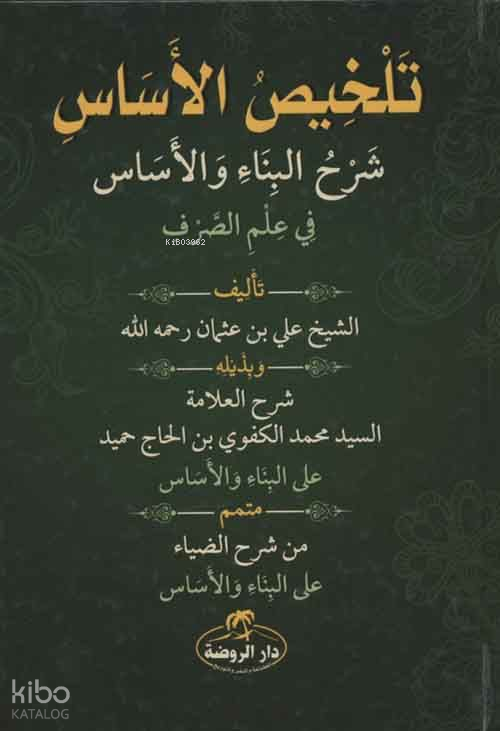 تَلْخِيصُ الأَسَاسِ
شَرْحُ البِنَاءِ وَالأَسَاس
فِي عِلْمِ الصَّرْف
KIB03962
تَأْلِيف
الشيخ علي بن عثمان رحمه الله
وَبِذَيْلِهِ
شرح العلامة
السيد محمد الكفوي بن الحاج حميد
على البِنَاءِ وَالأَسَاس
متمم
من شرح الضياء
على البِنَاءِ وَالأَسَاس
دار الروضة
kibo
KATALOG